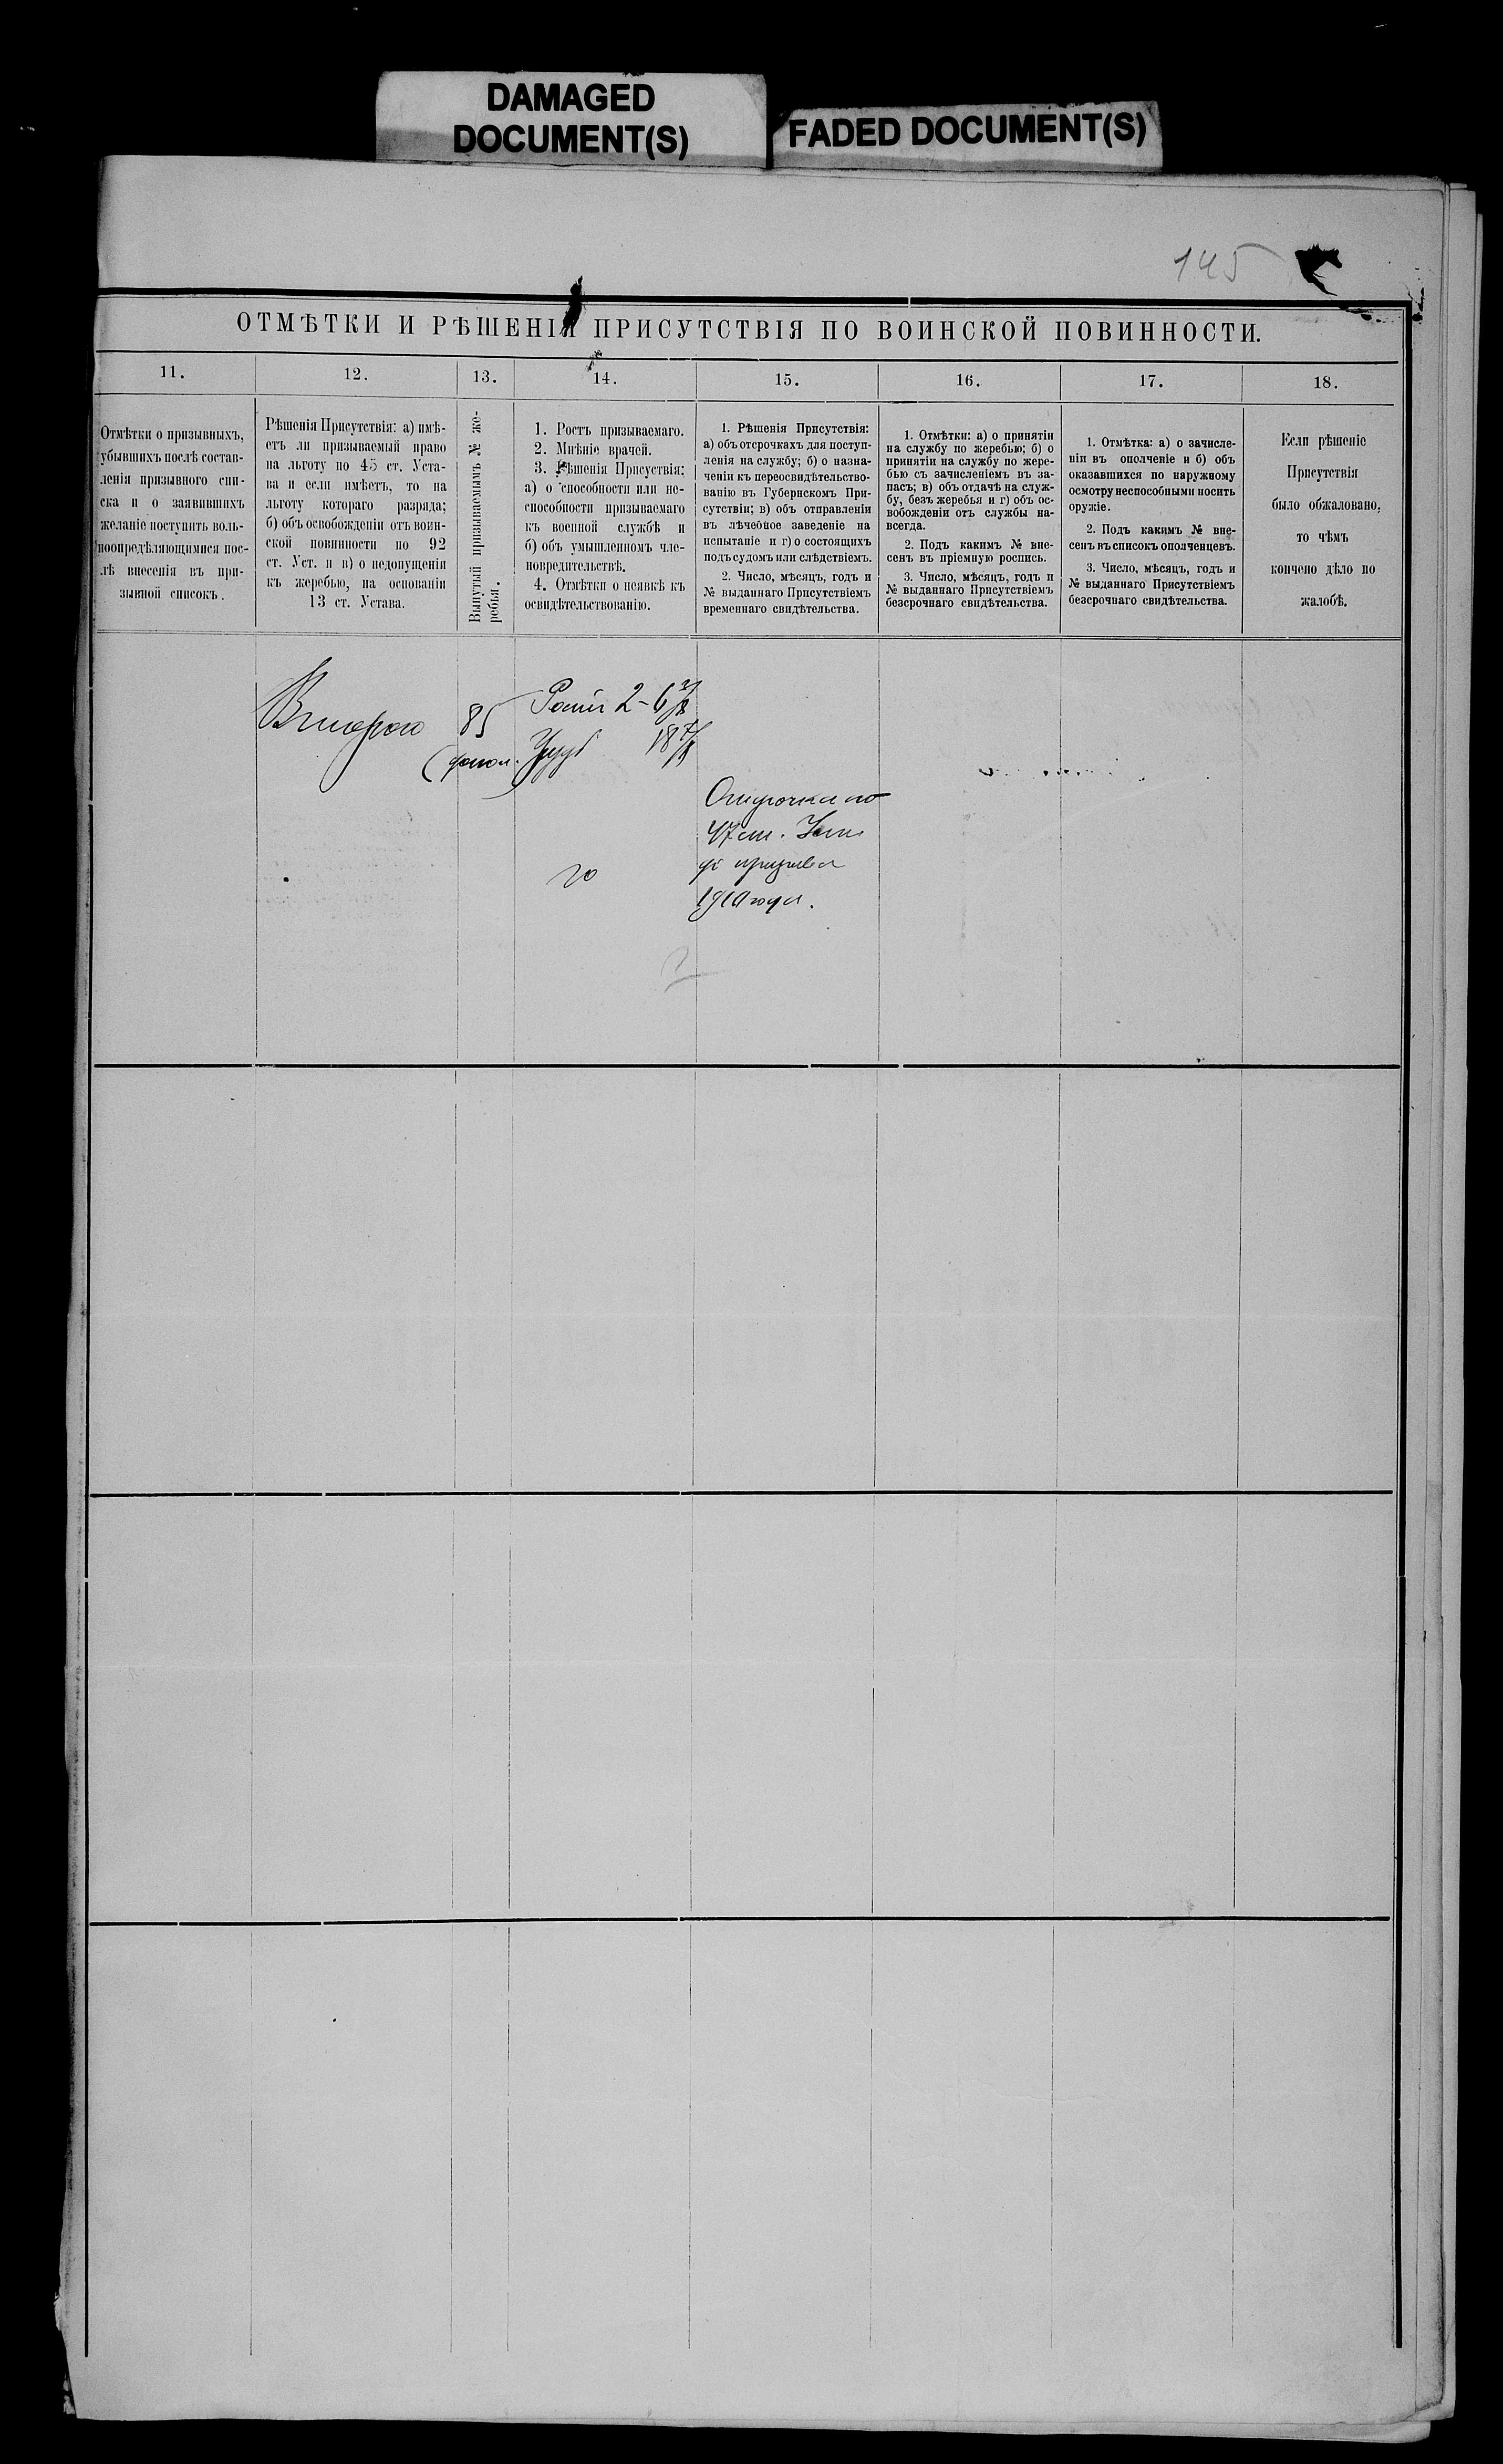 DAMAGED
DOCUMENT(S)
FADED DOCUMENT(S)
145
ОТМѢТКИ И РѢШЕНІЯ ПРИСУТСТВІЯ ПО ВОИНСКОЙ ПОВИННОСТИ.
11.
12.
13.
14.
15.
16.
17.
18.
Отмѣтки о призывныхъ,
убывшихъ послѣ состав-
ленія призывного спи-
ска и о заявившихъ
желаніе поступить воль-
ноопредѣляющимися пос-
лѣ внесенія въ при-
зывной списокъ.
Рѣшенія Присутствія: а) имѣ-
етъ ли призываемый право
на льготу по 45 ст. Уста-
ва и если имѣетъ, то на
льготу котораго разряда;
б) объ освобожденіи отъ воин-
ской повинности по 92
ст. Уст. и в) о недопущеніи
къ жеребью, на основаніи
13 ст. Устава.
Вынутый призываемымъ № же-
ребья.
1. Ростъ призываемаго.
2. Мнѣніе врачей.
3. Рѣшенія Присуствія:
а) о способности или не-
способности призываемаго
къ военной службѣ и
б) объ умышленномъ чле-
новредительствѣ.
4. Отмѣтки о неявкѣ къ
освидѣтельствованію.
1. Рѣшенія Присутствія:
а) объ отсрочкахъ для поступ-
ленія на службу; б) о назна-
ченіи къ переосвидѣтельство-
ванію въ Губернскомъ При-
сутствіи; в) объ отправленіи
въ лѣчебное заведеніе на
испытаніе и г) о состоящихъ
подъ судомъ или слѣдствіемъ.
2. Число, мѣсяцъ, годъ и
№ выданнаго Присутствіемъ
временнаго свидѣтельства.
1. Отмѣтки: а) о принятіи
на службу по жеребью; б) о
принятіи на службу по жере-
бью съ зачисленіемъ въ за-
пасъ; в) объ отдачѣ на служ-
бу, безъ жеребья и г) объ ос-
вобожденіи отъ службы на-
всегда.
2. Подъ какимъ № вне-
сенъ въ пріемную роспись.
3. Число, мѣсяцъ, годъ и
№ выданнаго Присутствіемъ
безсрочнаго свидѣтельства.
1. Отмѣтка: а) о зачисле-
ніи въ ополченіе и б) объ
оказавшихся по наружному
осмотру неспособными носить
оружіе.
2. Подъ какимъ № вне-
сенъ въ списокъ ополченцевъ.
3. Число, мѣсяцъ, годъ и
№ выданнаго Присутствіемъ
безсрочнаго свидѣтельства.
Если рѣшеніе
Присутствія
было обжаловано,
то чѣмъ
кончено дѣло по
жалобѣ.
Второго
85
(допол.)
Ростъ 2-6 3/8
Грудь 18 7/8
Отсрочка по
47 ст. Уст.
до призыва
1910 года.